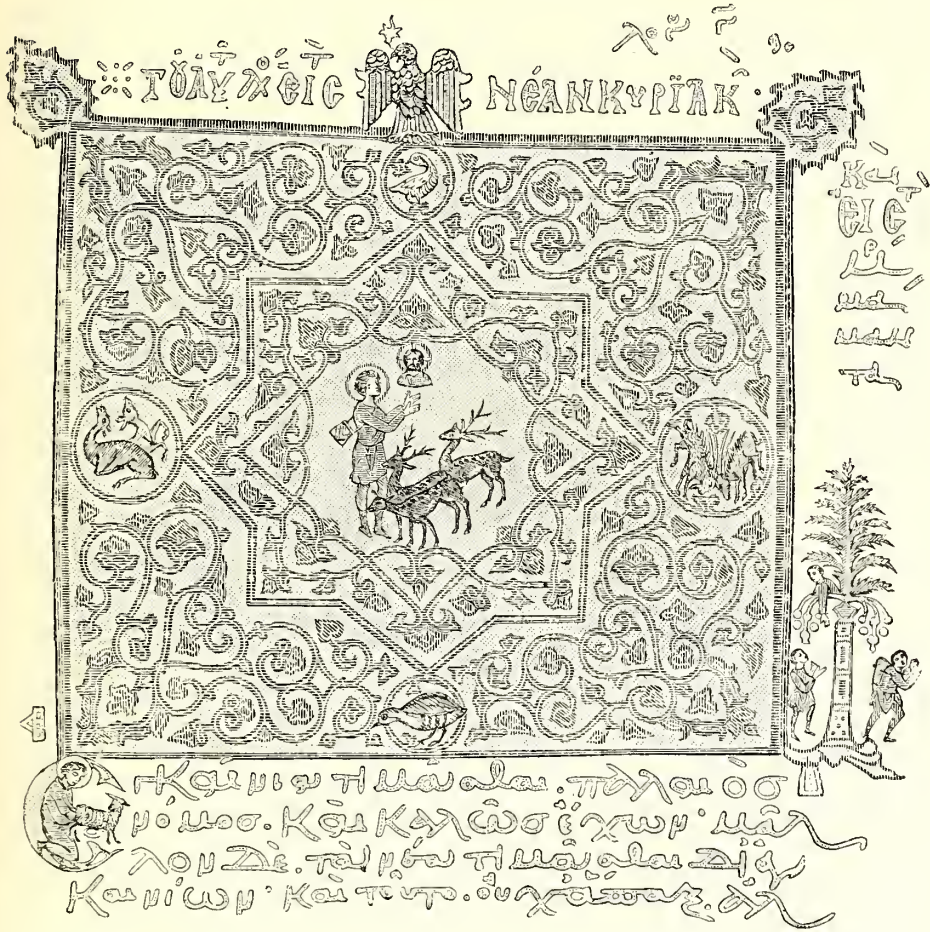 ΤȢ ΑΥΤ ΕΙC Τ ΝΕΑΝ ΚΥΡΪΑΚ
Κ
ΕΙC Τ
μά
μαν
τα
Ἐγκαίνια τιμᾶσθαι. παλαιὸσ
νόμοσ. Καὶ Καλῶσ ἔχων· μᾶλ
λον Δὲ. τὰ νέα τιμᾶσθαι Δι᾽ ἐγ
Καινίων· Καὶ τοῦτο. οὐχ ἅπαξ. ἀλ